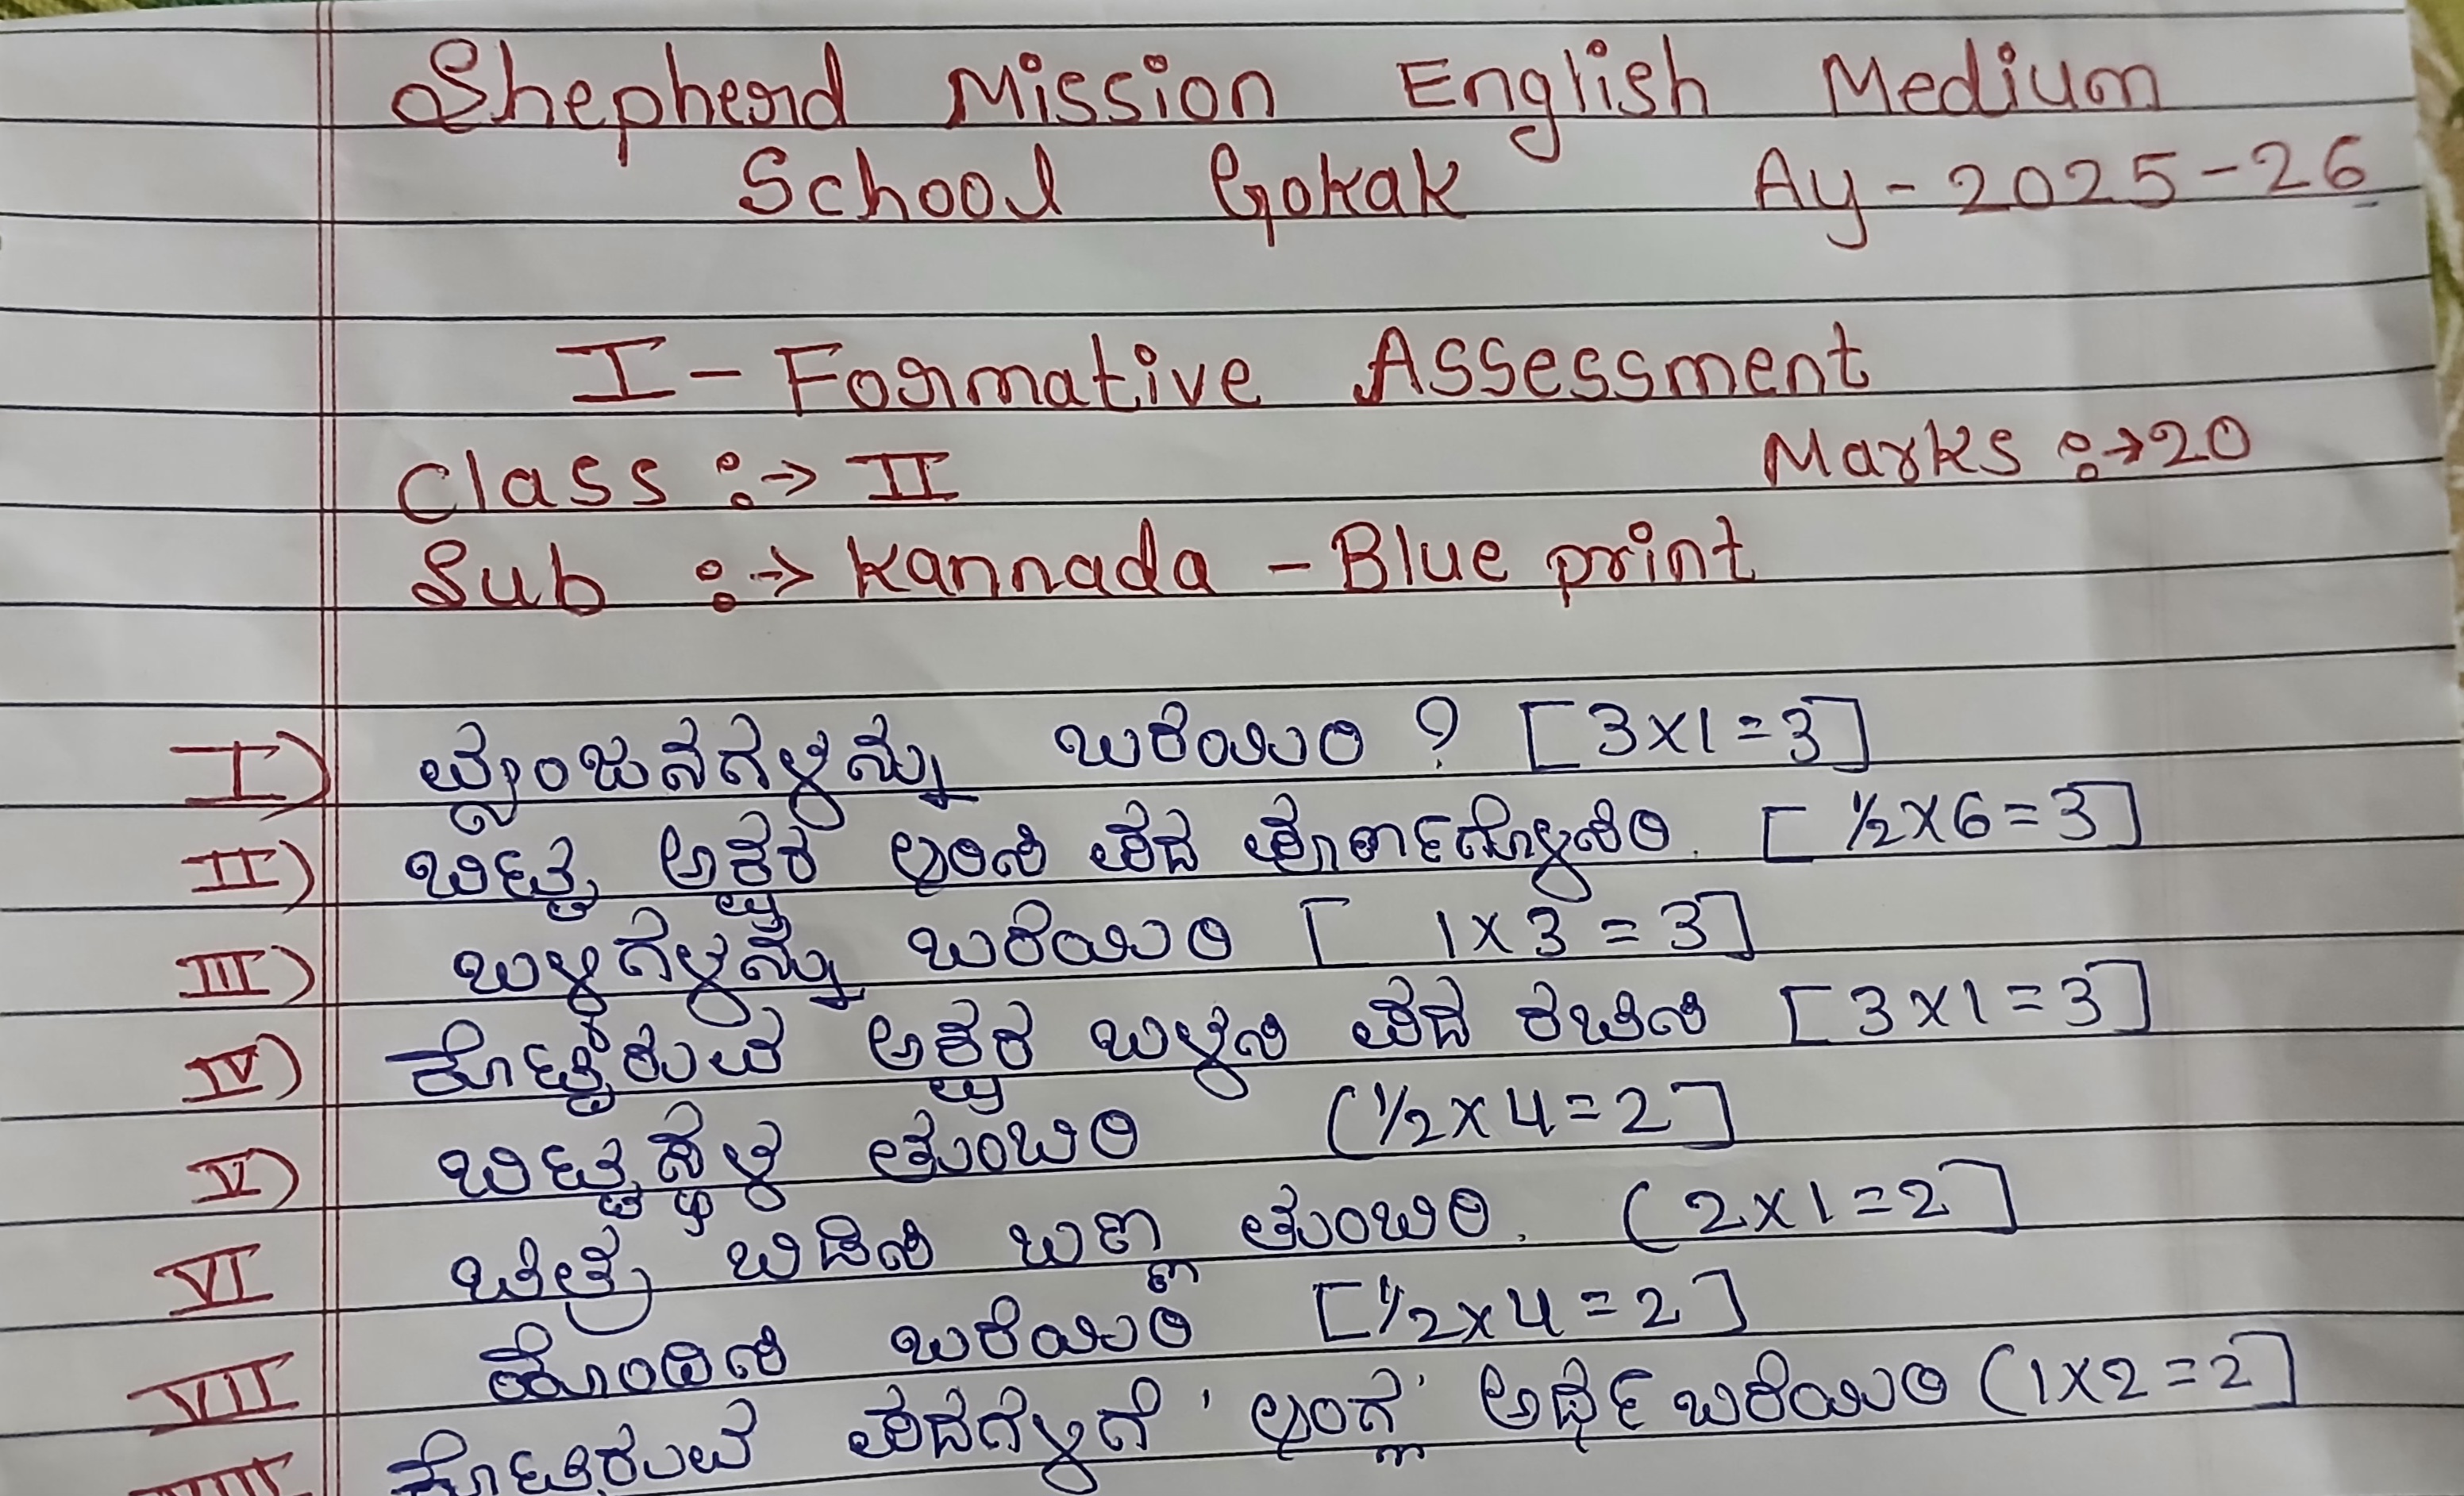 Shepherd Mission English Medium
School Gokak Ay-2025-26
I-Formative Assessment
Class :→ II Marks :→20
Sub :→ Kannada - Blue print
I) ವ್ಯಂಜನಗಳನ್ನು ಬರೆಯಿರಿ ? [3x1=3]
II) ಬಿಟ್ಟ ಅಕ್ಷರ ಭರಿಸಿ ಪದ ಪೂರ್ಣಗೊಳಿಸಿರಿ. [ ½x6=3]
III) ಬಳ್ಳಿಗಳನ್ನು ಬರೆಯಿರಿ [ 1x3=3]
IV) ಕೊಟ್ಟಿರುವ ಅಕ್ಷರ ಬಳಸಿ ಪದ ರಚಿಸಿ [3x1=3]
V) ಬಿಟ್ಟಸ್ಥಳ ತುಂಬಿರಿ (½x4=2]
VI ಚಿತ್ರ ಬಿಡಿಸಿ ಬಣ್ಣ ತುಂಬಿರಿ. (2x1=2]
VII ಹೊಂದಿಸಿ ಬರೆಯಿರಿ [½x4=2]
VIII ಕೊಟ್ಟಿರುವ ಪದಗಳಿಗೆ ' ಆಂಗ್ಲ' ಅರ್ಥ ಬರೆಯಿರಿ (1x2=2]